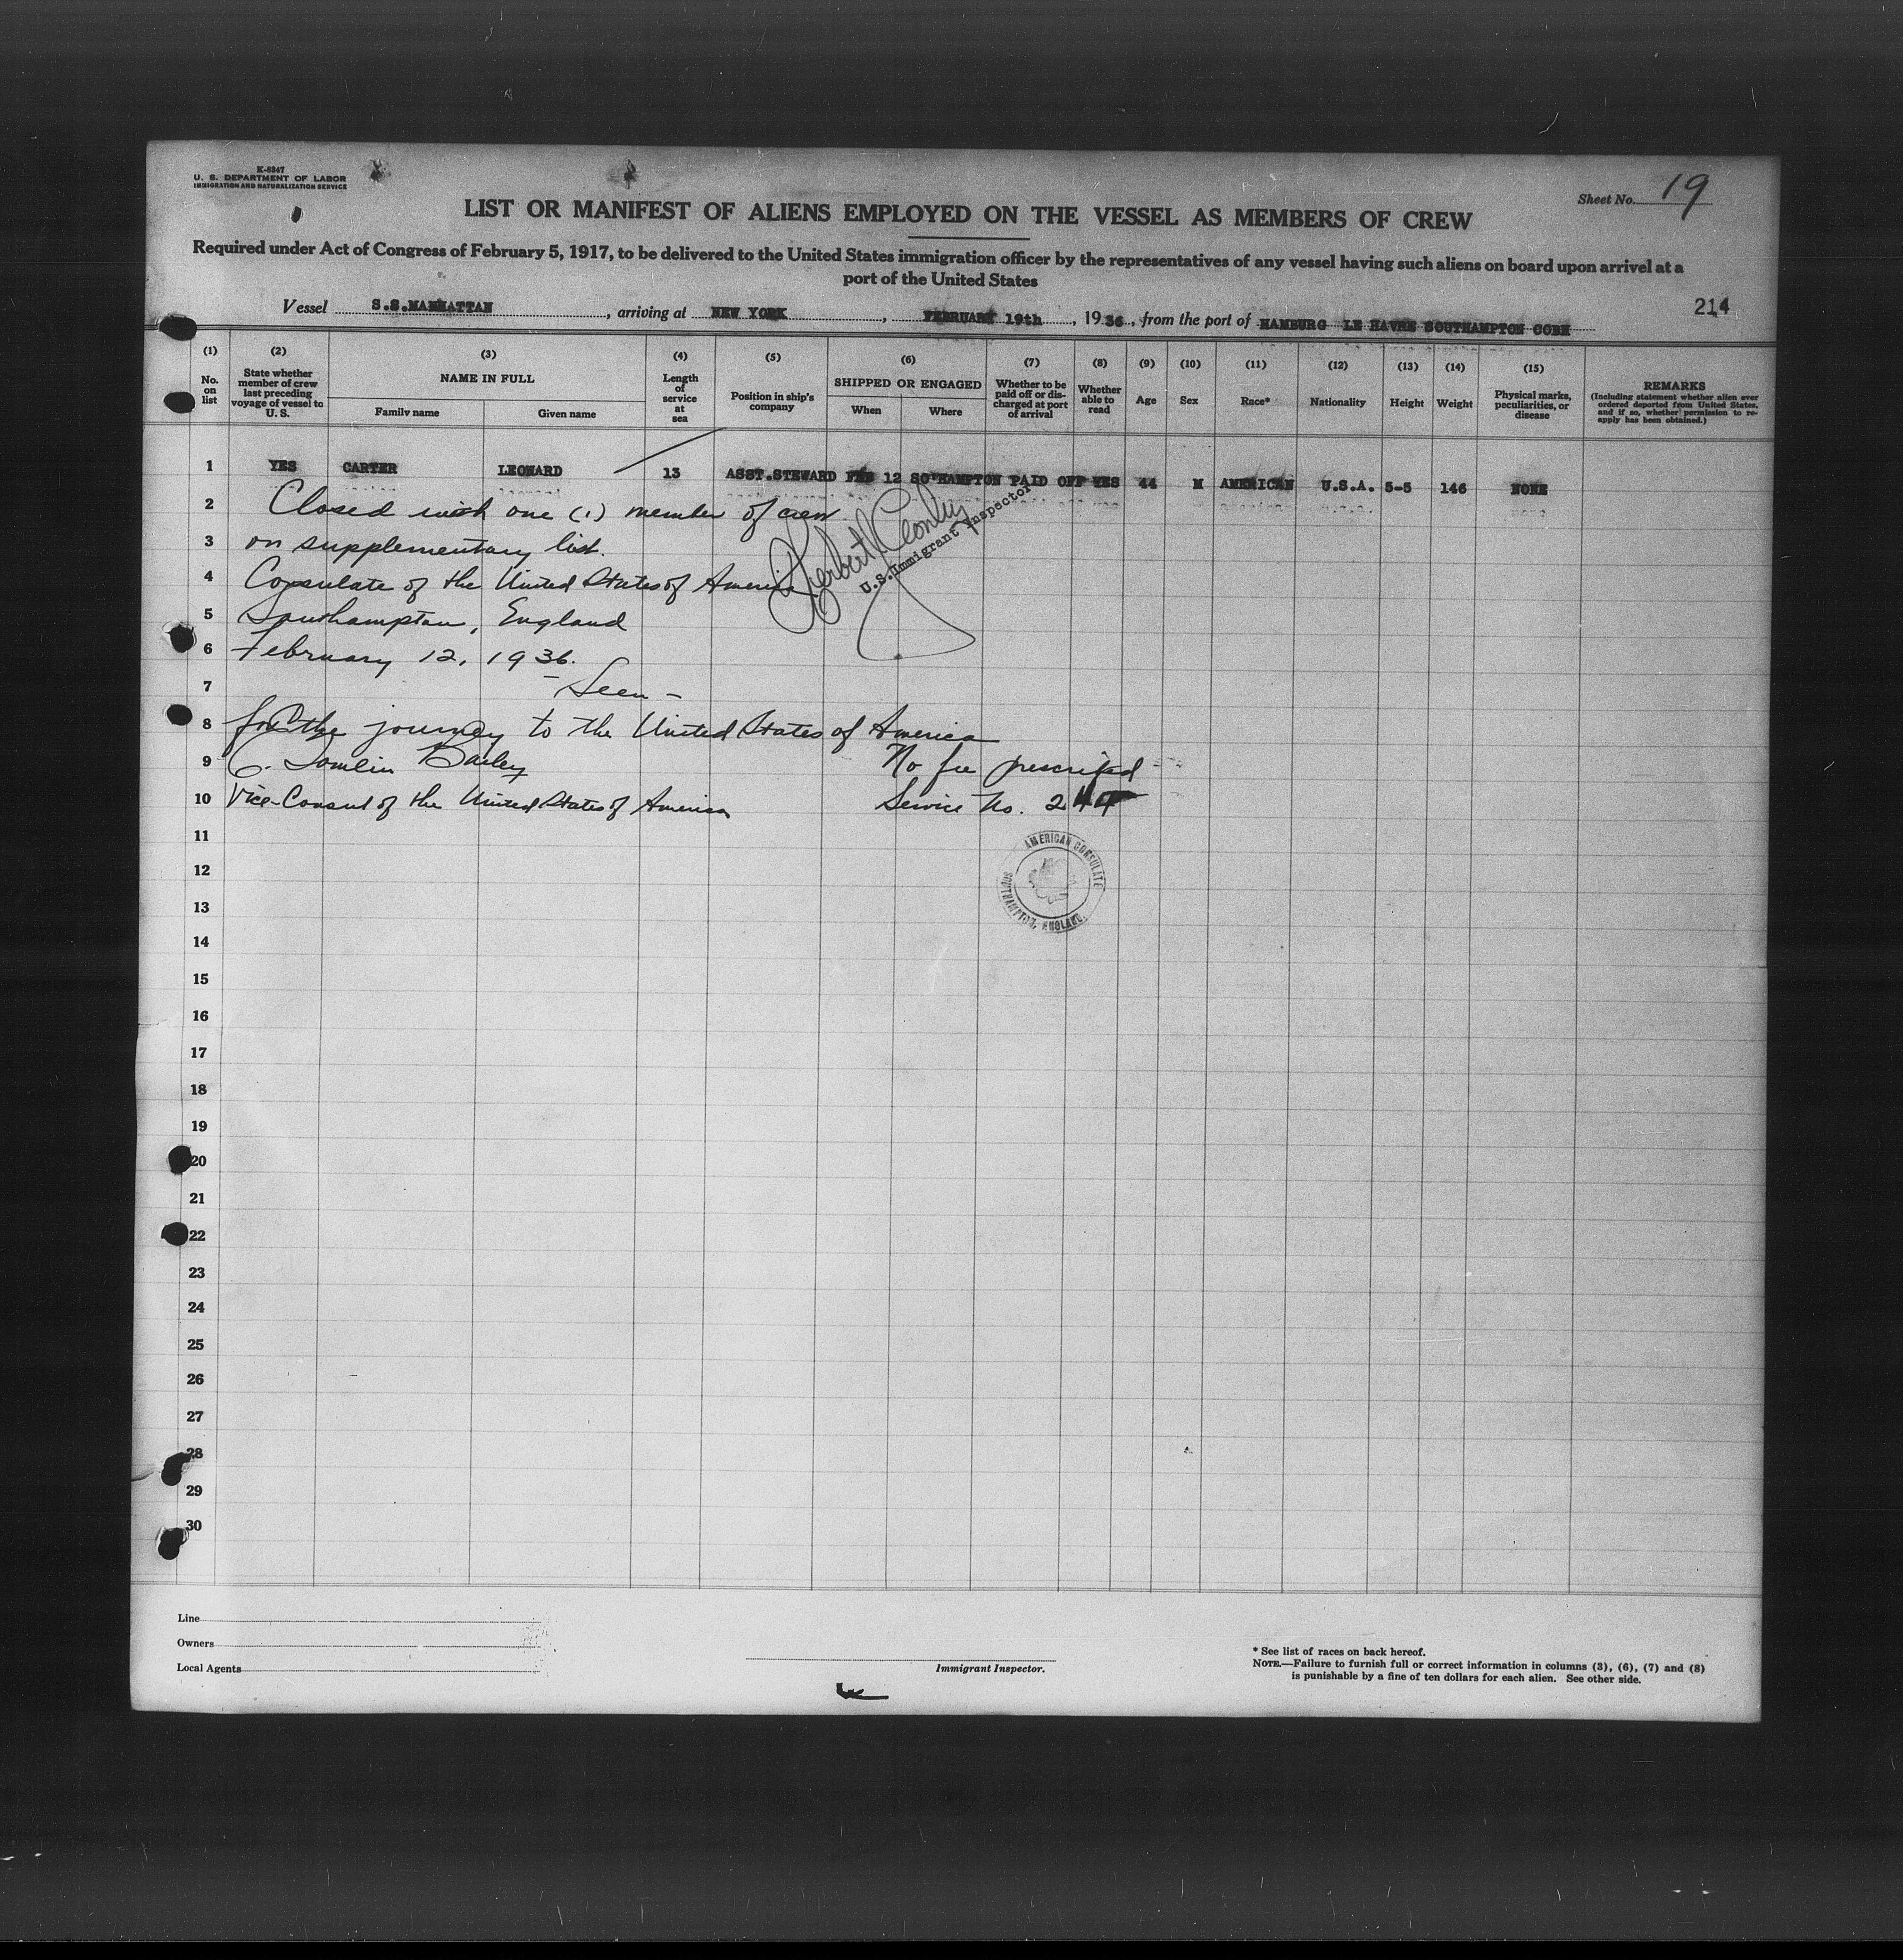 K-5347
U. S. DEPARTMENT OF LABOR
IMMIGRATION AND NATURALIZATION SERVICE
Sheet No. 19
LIST OR MANIFEST OF ALIENS EMPLOYED ON THE VESSEL AS MEMBERS OF CREW
Required under Act of Congress of February 5, 1917, to be delivered to the United States immigration officer by the representatives of any vessel having such aliens on board upon arrival at a
port of the United States
214
Vessel S.S.MANHATTAN, arriving at NEW YORK, FEBRUARY 19th, 1936, from the port of HAMBURG LE HAVRE SOUTHAMPTON COBH
(1) No. on list
(2) State whether member of crew last preceding voyage of vessel to U. S.
(3) NAME IN FULL
Family name Given name
(4) Length of service at sea
(5) Position in ship's company
(6) SHIPPED OR ENGAGED
When Where
(7) Whether to be paid off or discharged at port of arrival
(8) Whether able to read
(9) Age
(10) Sex
(11) Race*
(12) Nationality
(13) Height
(14) Weight
(15) Physical marks, peculiarities, or disease
REMARKS
(Including statement whether alien ever ordered deported from United States, and if so, whether permission to reapply has been obtained.)
1 YES CARTER LEONARD 13 ASST.STEWARD FEB 12 SO'HAMPTON PAID OFF YES 44 M AMERICAN U.S.A. 5-5 146 NONE
2 Closed with one (1) member of crew
3 on supplementary list.
U.S. Immigrant Inspector
4 Consulate of the United States of America
5 Southampton, England
6 February 12, 1936.
7 - Seen -
8 for the journey to the United States of America
9 C. Tomlin Bailey No fee prescribed
10 Vice-Consul of the United States of America Service No. 244
11
AMERICAN CONSULATE
SOUTHAMPTON, ENGLAND.
12
13
14
15
16
17
18
19
20
21
22
23
24
25
26
27
28
29
30
Line
Owners
Local Agents
Immigrant Inspector.
* See list of races on back hereof.
NOTE.—Failure to furnish full or correct information in columns (3), (6), (7) and (8)
is punishable by a fine of ten dollars for each alien. See other side.